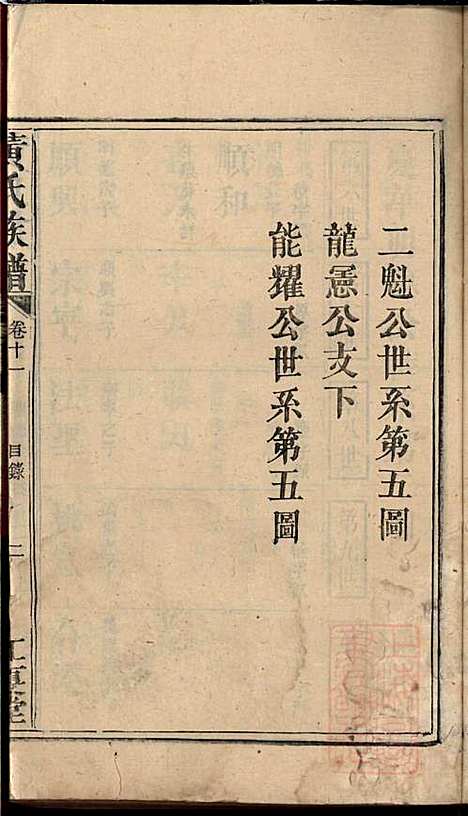 二魁公世系第五圖
龍憲公支下
能耀公世系第五圖
黃氏族譜
卷十一
目錄
二
江夏堂